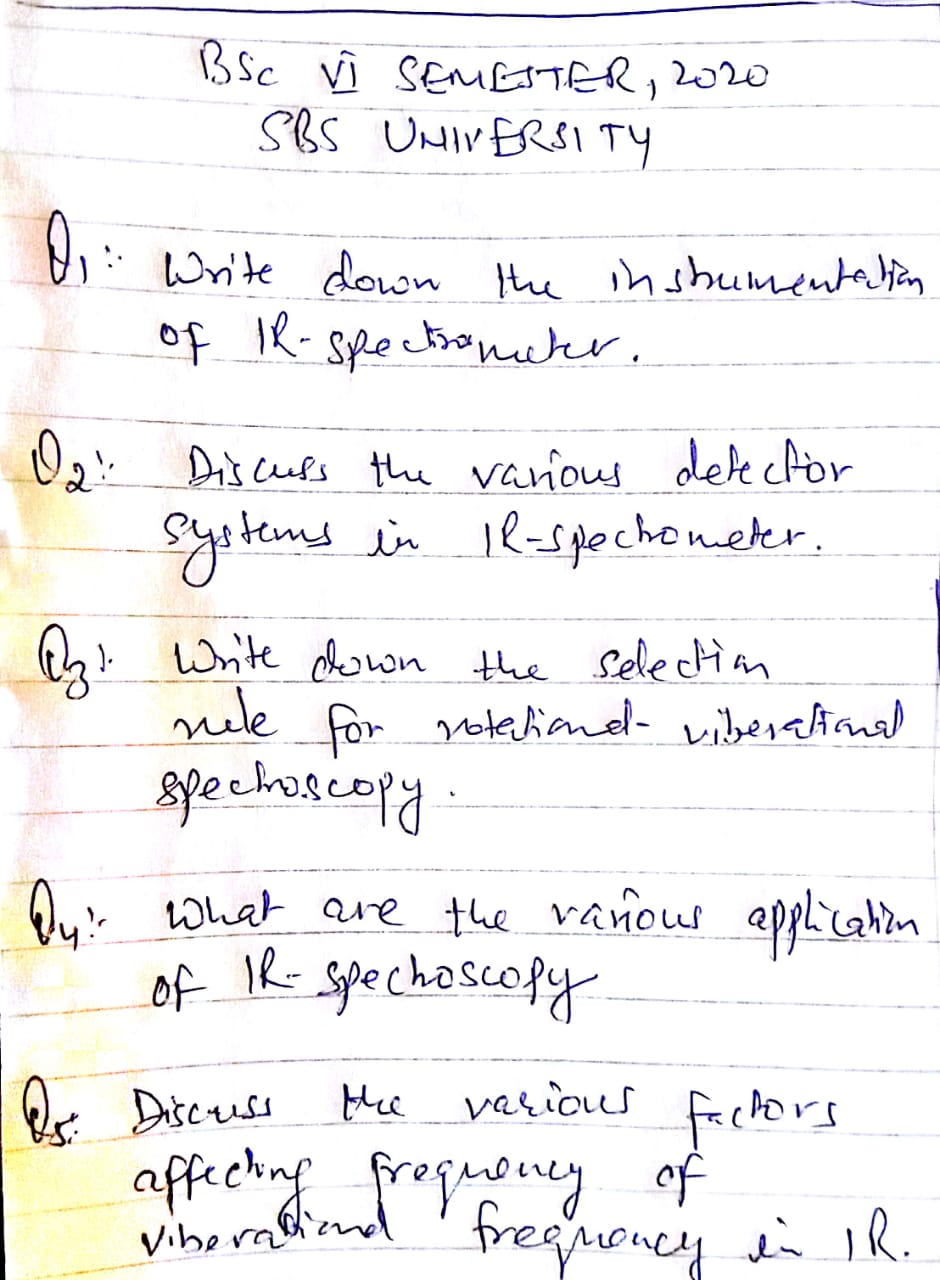 BSc VI SEMESTER, 2020
SBS UNIVERSITY
Q1:- Write down the instrumentation
of IR-spectrometer.
Q2:- Discuss the various detector
systems in IR-spectrometer.
Q3:- Write down the selection
rule for rotational- viberational
spectroscopy.
Q4:- What are the various application
of IR- spectroscopy
Q5:- Discuss the various factors
affecting frequency of
viberational frequency in IR.